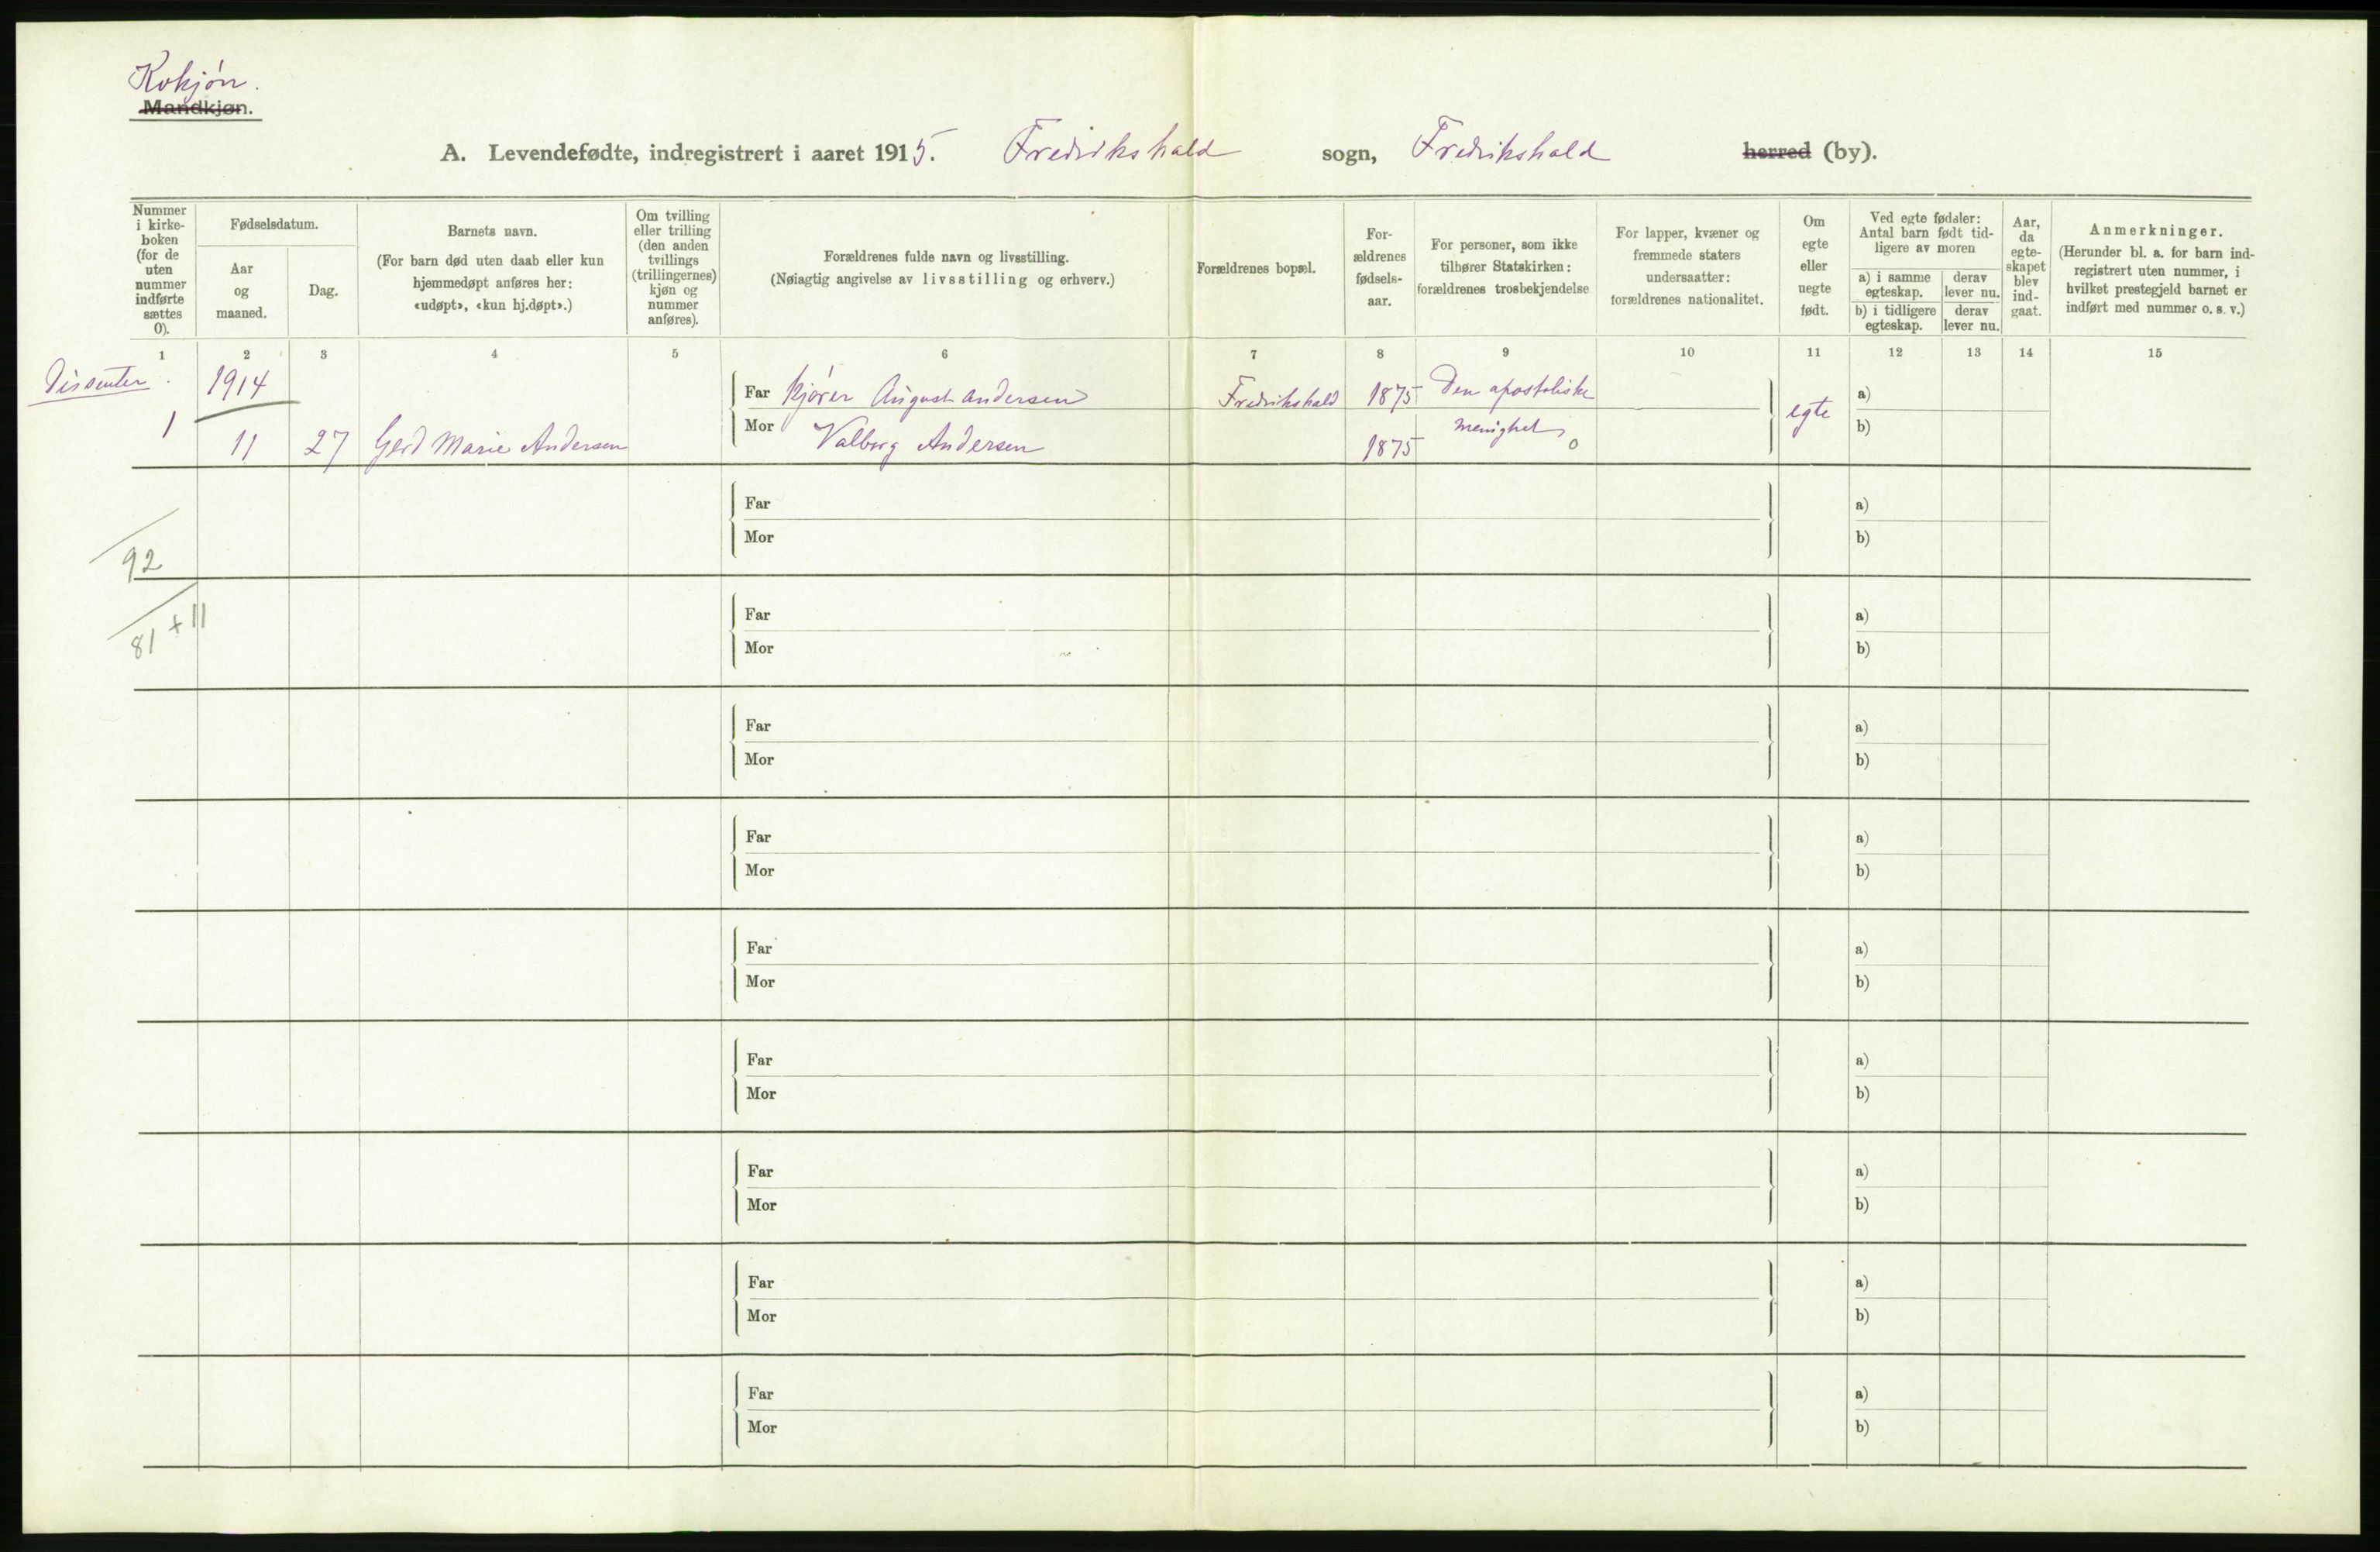 Kvkjøn.
Mandkjøn.
A. Levendefødte, indregistrert i aaret 1915. Fredrikshald sogn, Fredrikshald herred (by).
Nummer
i kirke-
boken
(for de
uten
nummer
indførte
sættes
0).
Fødselsdatum.
Aar
og
maaned.
Dag.
Barnets navn.
(For barn død uten daab eller kun
hjemmedøpt anføres her:
«udøpt», «kun hj.døpt».)
Om tvilling
eller trilling
(den anden
tvillings
(trillingernes)
kjøn og
nummer
anføres).
Forældrenes fulde navn og livsstilling.
(Nøiagtig angivelse av livsstilling og erhverv.)
Forældrenes bopæl.
For-
ældrenes
fødsels-
aar.
For personer, som ikke
tilhører Statskirken:
forældrenes trosbekjendelse
For lapper, kvæner og
fremmede staters
undersaatter:
forældrenes nationalitet.
Om
egte
eller
uegte
født.
Ved egte fødsler:
Antal barn født tid-
ligere av moren
a) i samme
egteskap.
derav
lever nu.
b) i tidligere
egteskap.
derav
lever nu.
Aar,
da
egte-
skapet
blev
ind-
gaat.
Anmerkninger.
(Herunder bl. a. for barn ind-
registrert uten nummer, i
hvilket prestegjeld barnet er
indført med nummer o. s. v.)
1 2 3 4 5 6 7 8 9 10 11 12 13 14 15
Dissenter. 1914 Far Kjører August Andersen Fredrikshald 1875 Den apostoliske egte a)
1 11 27 Gerd Marie Andersen Mor Valborg Andersen 1875 menighet o b)
Far a)
Mor b)
92
Far a)
81 + 11
Mor b)
Far a)
Mor b)
Far a)
Mor b)
Far a)
Mor b)
Far a)
Mor b)
Far a)
Mor b)
Far a)
Mor b)
Far a)
Mor b)